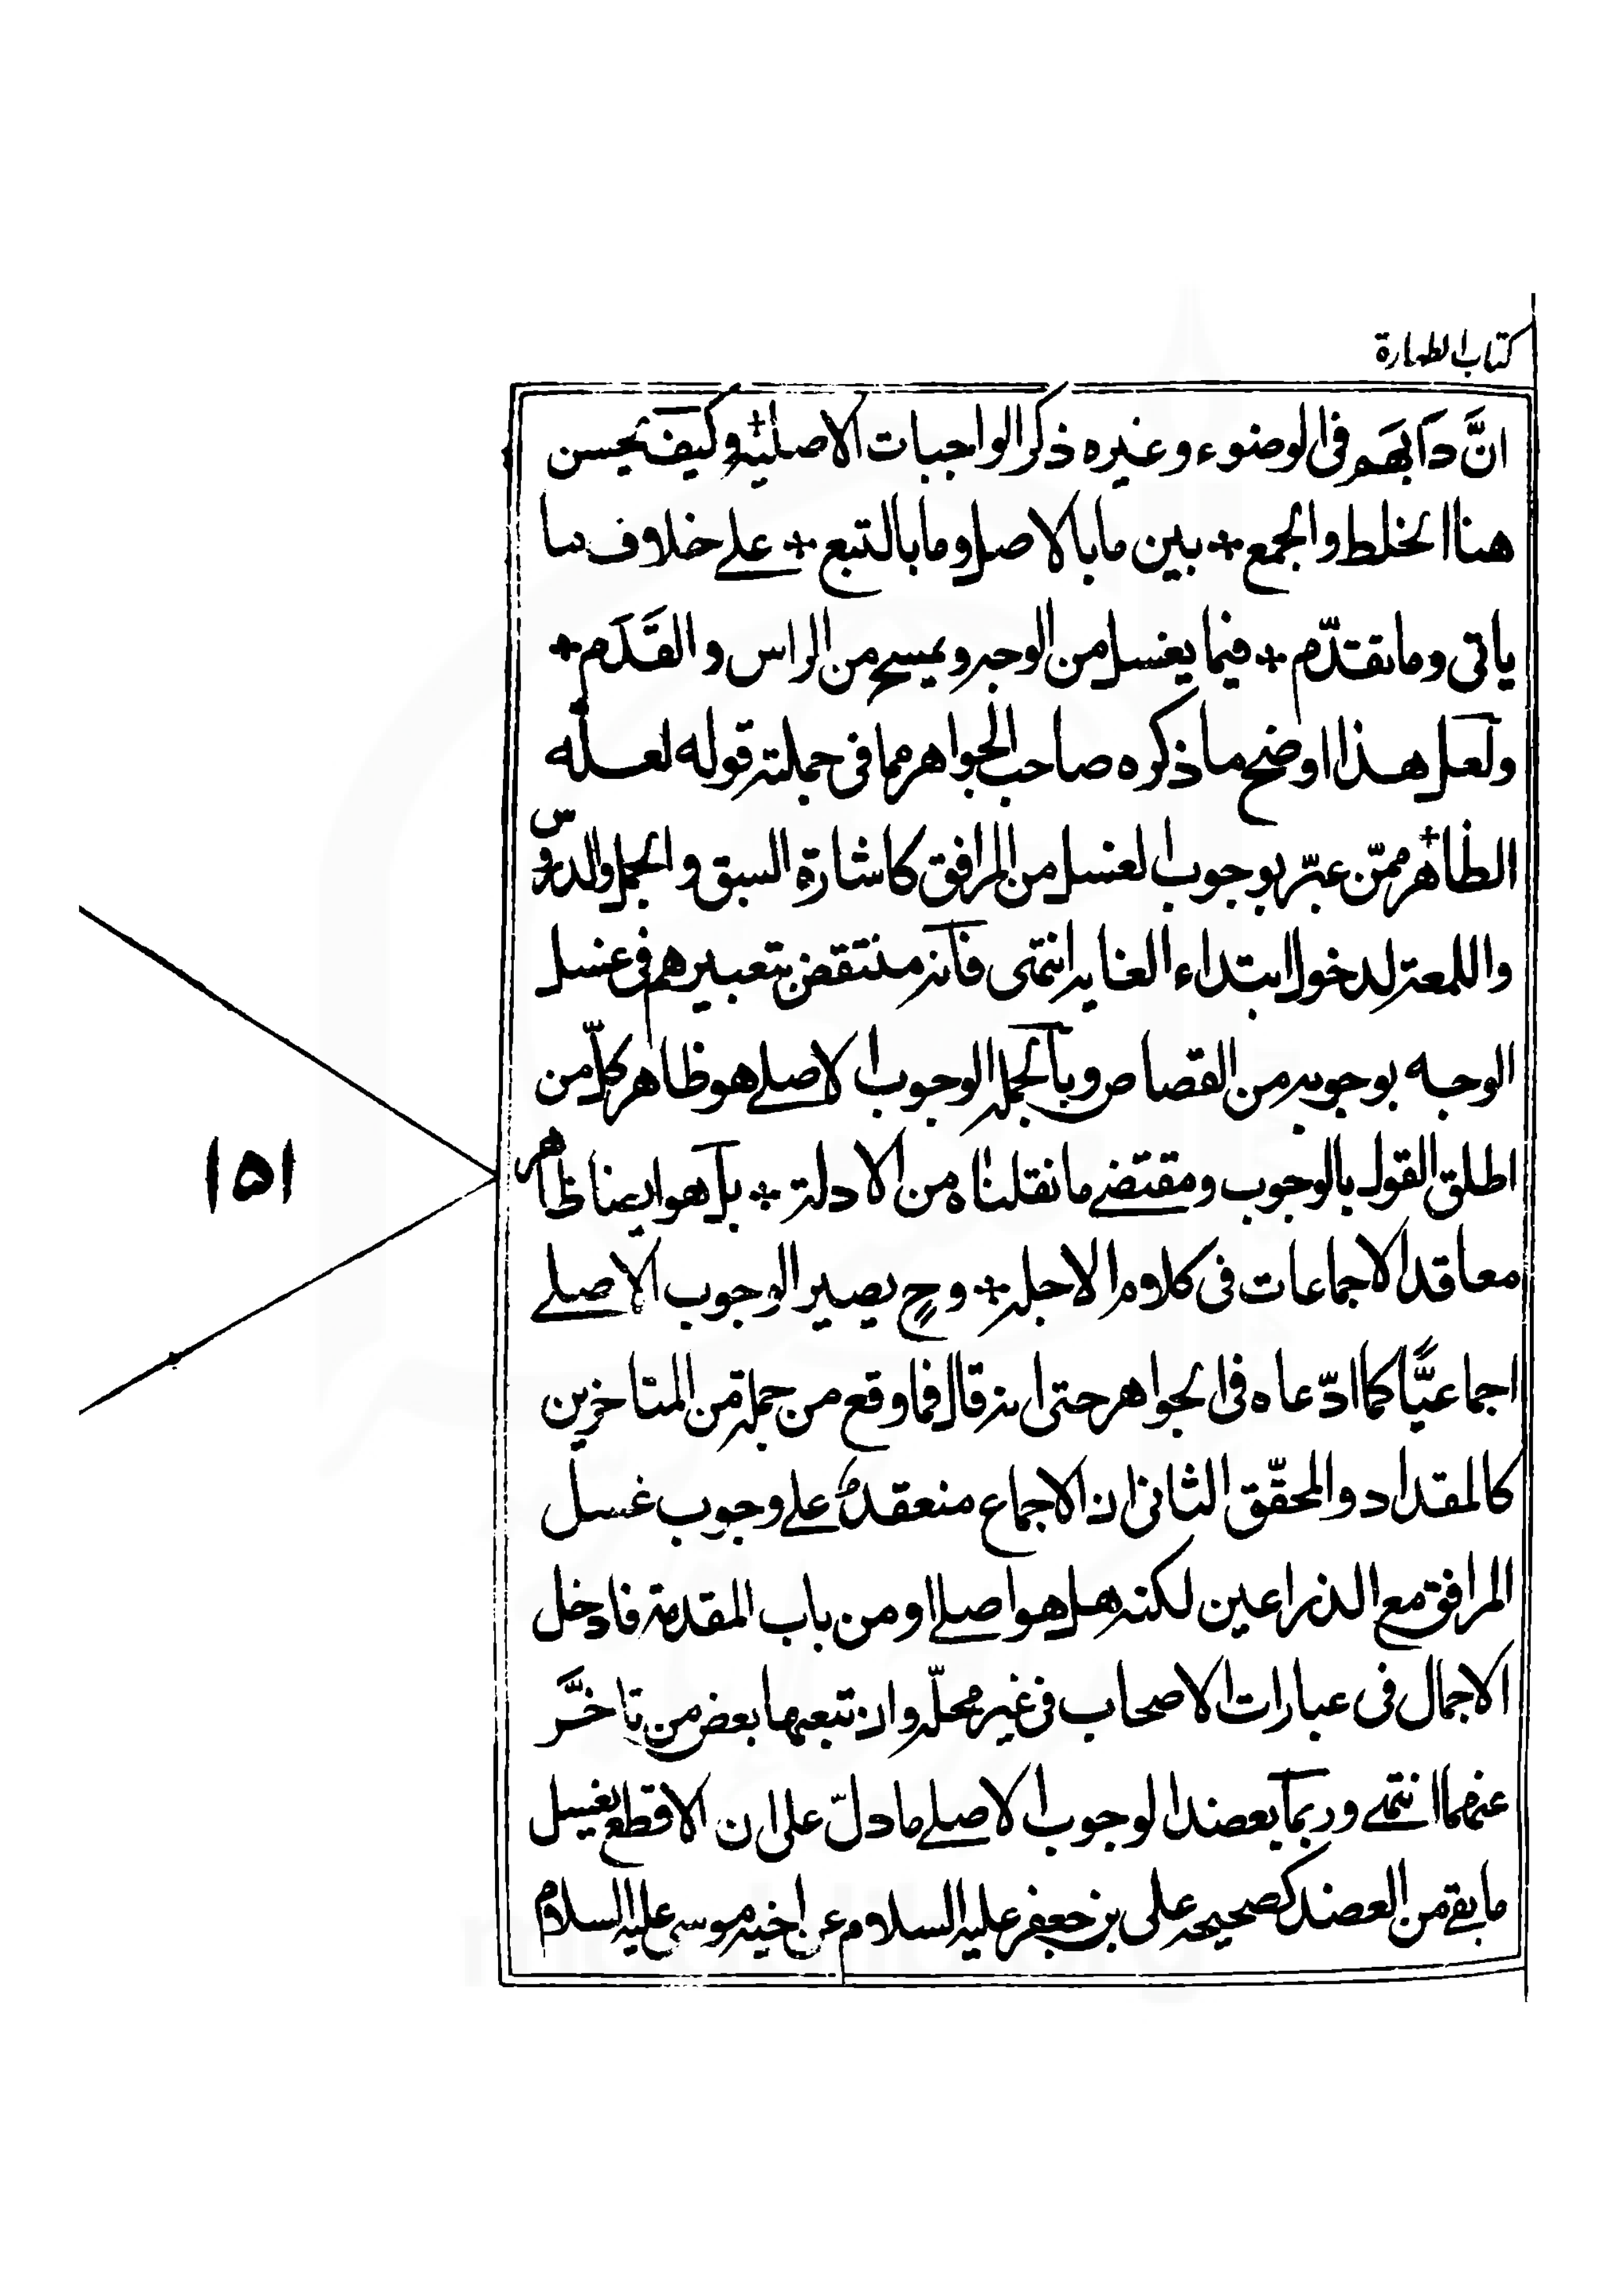 كتاب الطهارة
انَّ دَأبَهَم فى الوضوء وغيره ذكر الواجبات الاصليّة وكيف يحسن
هنا الخلط والجمع * بين ما بالاصل وما بالتبع * على خلاف ما
ياتى وما تقدّم * فيما يغسل من الوجه ويمسح من الراس والقَدَم *
ولعل هذا اوضح ما ذكره صاحب الجواهر مما فى جملته قوله لعلّه
الظاهر ممّن عبّر بوجوب الغسل من المرافق كاشارة السبق والجمل والدروس
واللمعة لدخول ابتداء الغايه انتهى فانه منتقض بتعبيرهم فى غسل
الوجه بوجوبه من القصاص وبالجمله الوجوب الاصلے هو ظاهر كلّ من
اطلق القول بالوجوب ومقتضے ما نقلناه من الادلة * بل هو ايضا ظاهر
معاقد الاجماعات فى كلام الاجله * وحٍ يصير الوجوب الاصلے
اجماعيًّا كما ادّعاه فى الجواهر حتى انه قال فما وقع من جملة من المتاخرين
كالمقداد والمحقّق الثانى ان الاجماع منعقدٌ علے وجوب غسل
المرافق مع الذراعين لكنه هل هو اصلے او من باب المقدمة فادخل
الاجمال فى عبارات الاصحاب فى غير محلّه وان تتعبها بعض من تاخَّر
عنهما انتهے وربما يعضد الوجوب الاصلے ما دلّ على ان الاقطع يغسل
ما بقے من العضد كصحيحه على بن جعفر عليه السلام عن اخيه موسى عليه السلام
١٥١